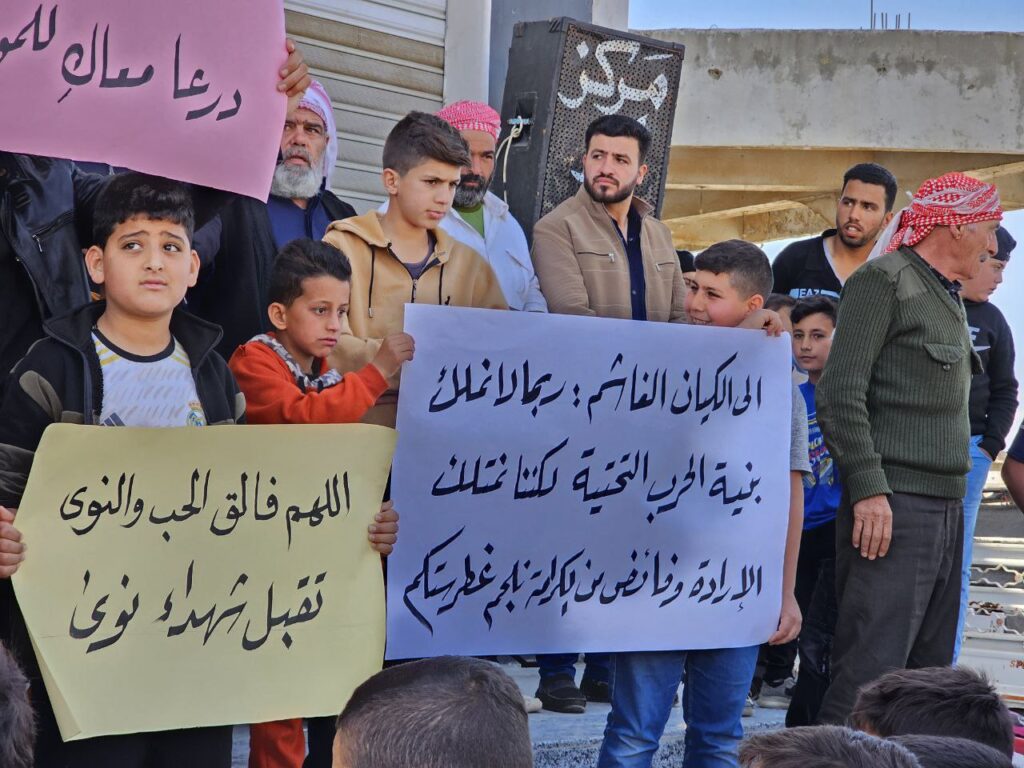 درعا معاكِ للمو
مركز
الى الكيان الغاشم : ربما لا نملك
بنية الحرب التحتية لكننا نمتلك
الإرادة وفائض من الكرامة نلجم غطرستكم
اللهم فالق الحب والنوى
تقبل شهداء نوىٰ